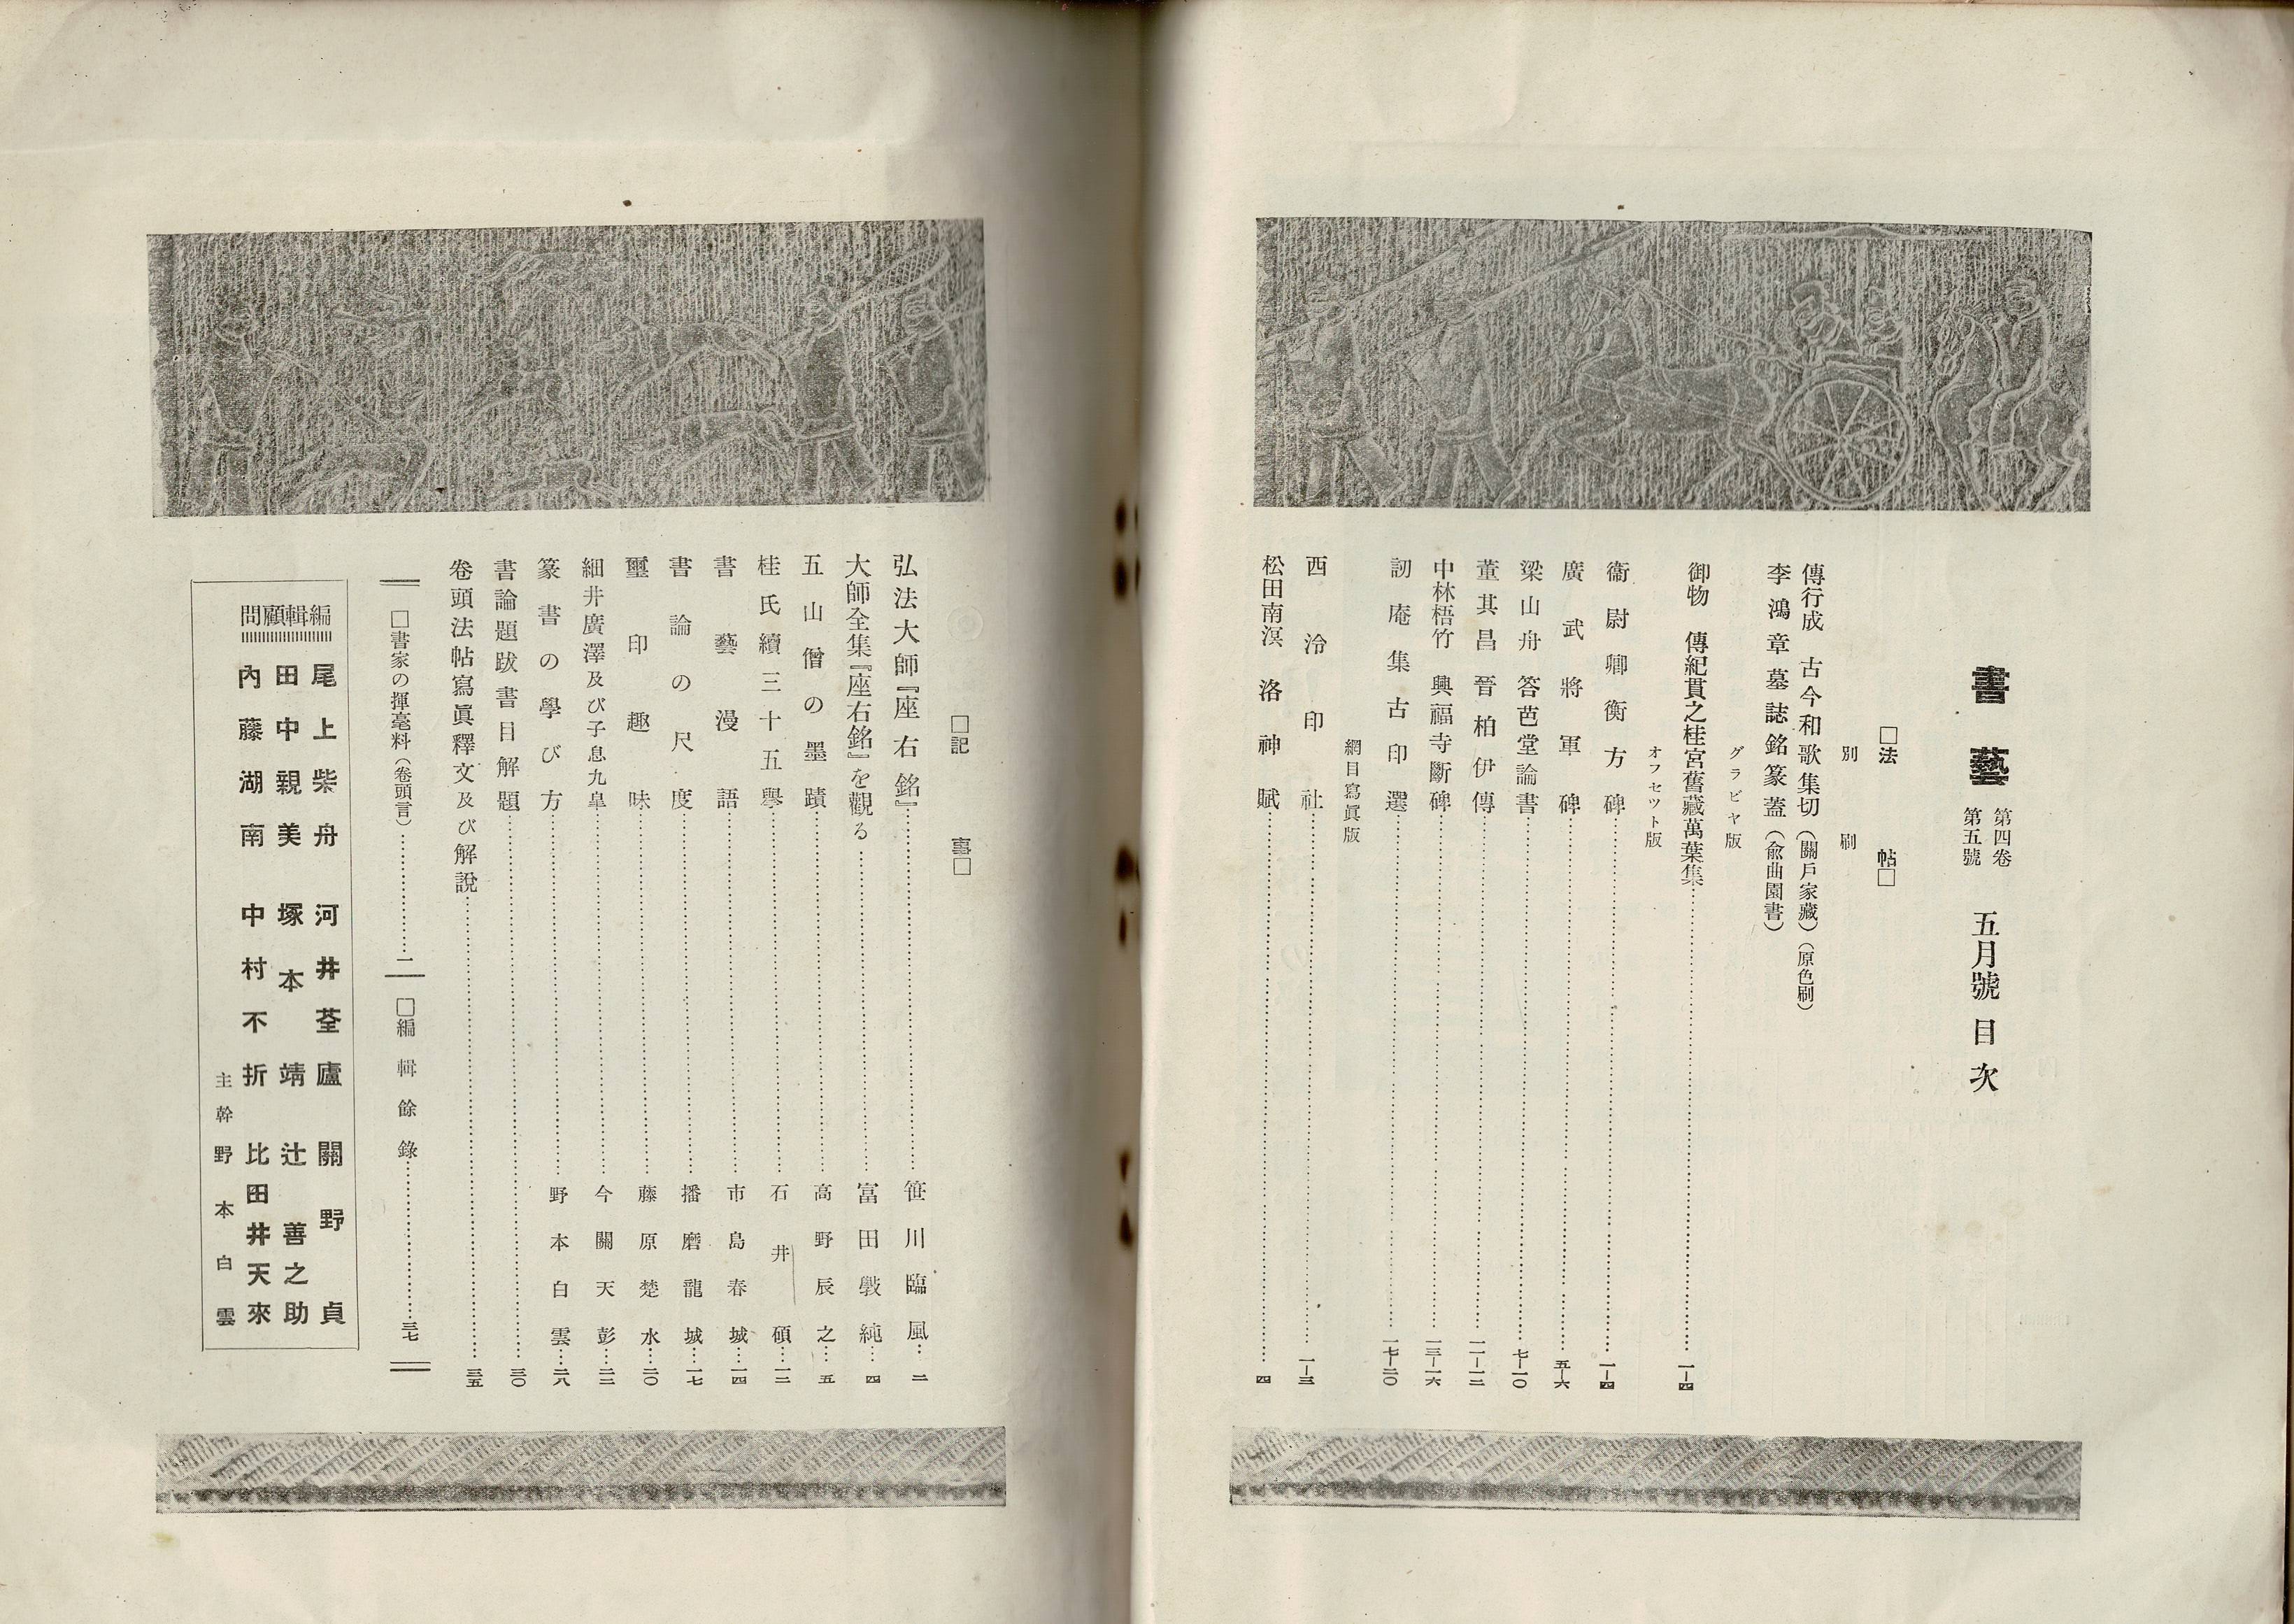 書藝 第四卷 第五號 五月號目次
□法帖□
別刷
傳行成 古今和歌集切(關戶家藏)(原色刷)
李鴻章墓誌銘篆蓋(兪曲園書)
グラビヤ版
御物 傳紀貫之桂宮舊藏萬葉集……一—四
オフセツト版
衞尉卿衡方碑……一—四
廣武將軍碑……五—六
梁山舟答芭堂論書……七—一〇
董其昌晉柏伊傳……一一—一二
中林梧竹 興福寺斷碑……一三—一六
訒庵集古印選……一七—二〇
網目寫眞版
西泠印社……一—三
松田南溟 洛神賦……四
□記事□
弘法大師『座右銘』……笹川臨風…二
大師全集『座右銘』を觀る……富田斅純…四
五山僧の墨蹟……高野辰之…五
桂氏續三十五擧……石井碩…一二
書藝漫語……市島春城…一四
書論の尺度……播磨龍城…一七
璽印趣味……藤原楚水…二〇
細井廣澤及び子息九皐……今關天彭…二二
篆書の學び方……野本白雲…二八
書論題跋書目解題……三〇
卷頭法帖寫眞釋文及び解說……三五
□書家の揮毫料(卷頭言)……一
□編輯餘錄……三七
編輯顧問
尾上柴舟 河井荃廬 關野貞
田中親美 塚本靖 辻善之助
內藤湖南 中村不折 比田井天來
主幹 野本白雲